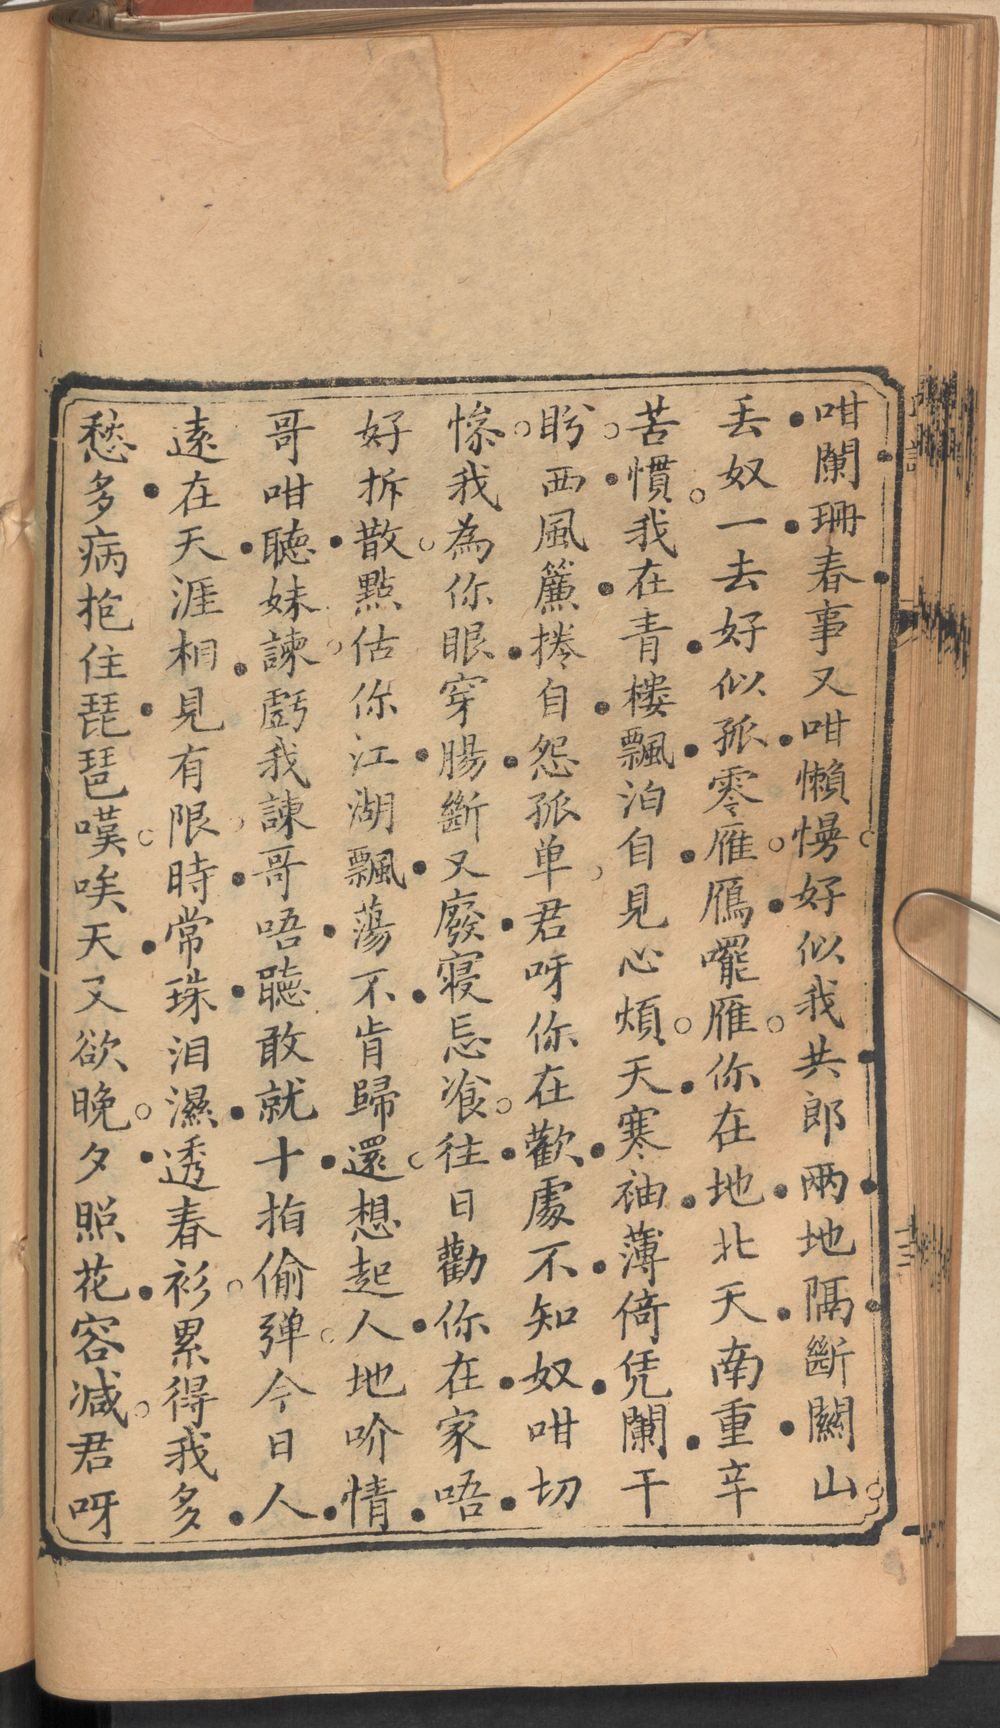 咁闌珊春事又咁懶慢好似我共郎兩地隔斷關山
丢奴一去好似孤零雁雁囉雁你在地北天南重辛
苦慣我在青楼飄泊自見心煩天寒袖薄倚凭闌干
盻西風簾捲自怨孤单君呀你在歡處不知奴咁切
慘我為你眼穿腸斷又廢寝忘飡往日勸你在家唔
好拆散點估你江湖飄蕩不肯歸還想起人地吤情
哥咁聽妹諫虧我諫哥唔聽敢就十指偷弹今日人
遠在天涯相見有限時常珠泪濕透春衫累得我多
愁多病抱住琵琶嘆唉天又欲晚夕照花容减君呀